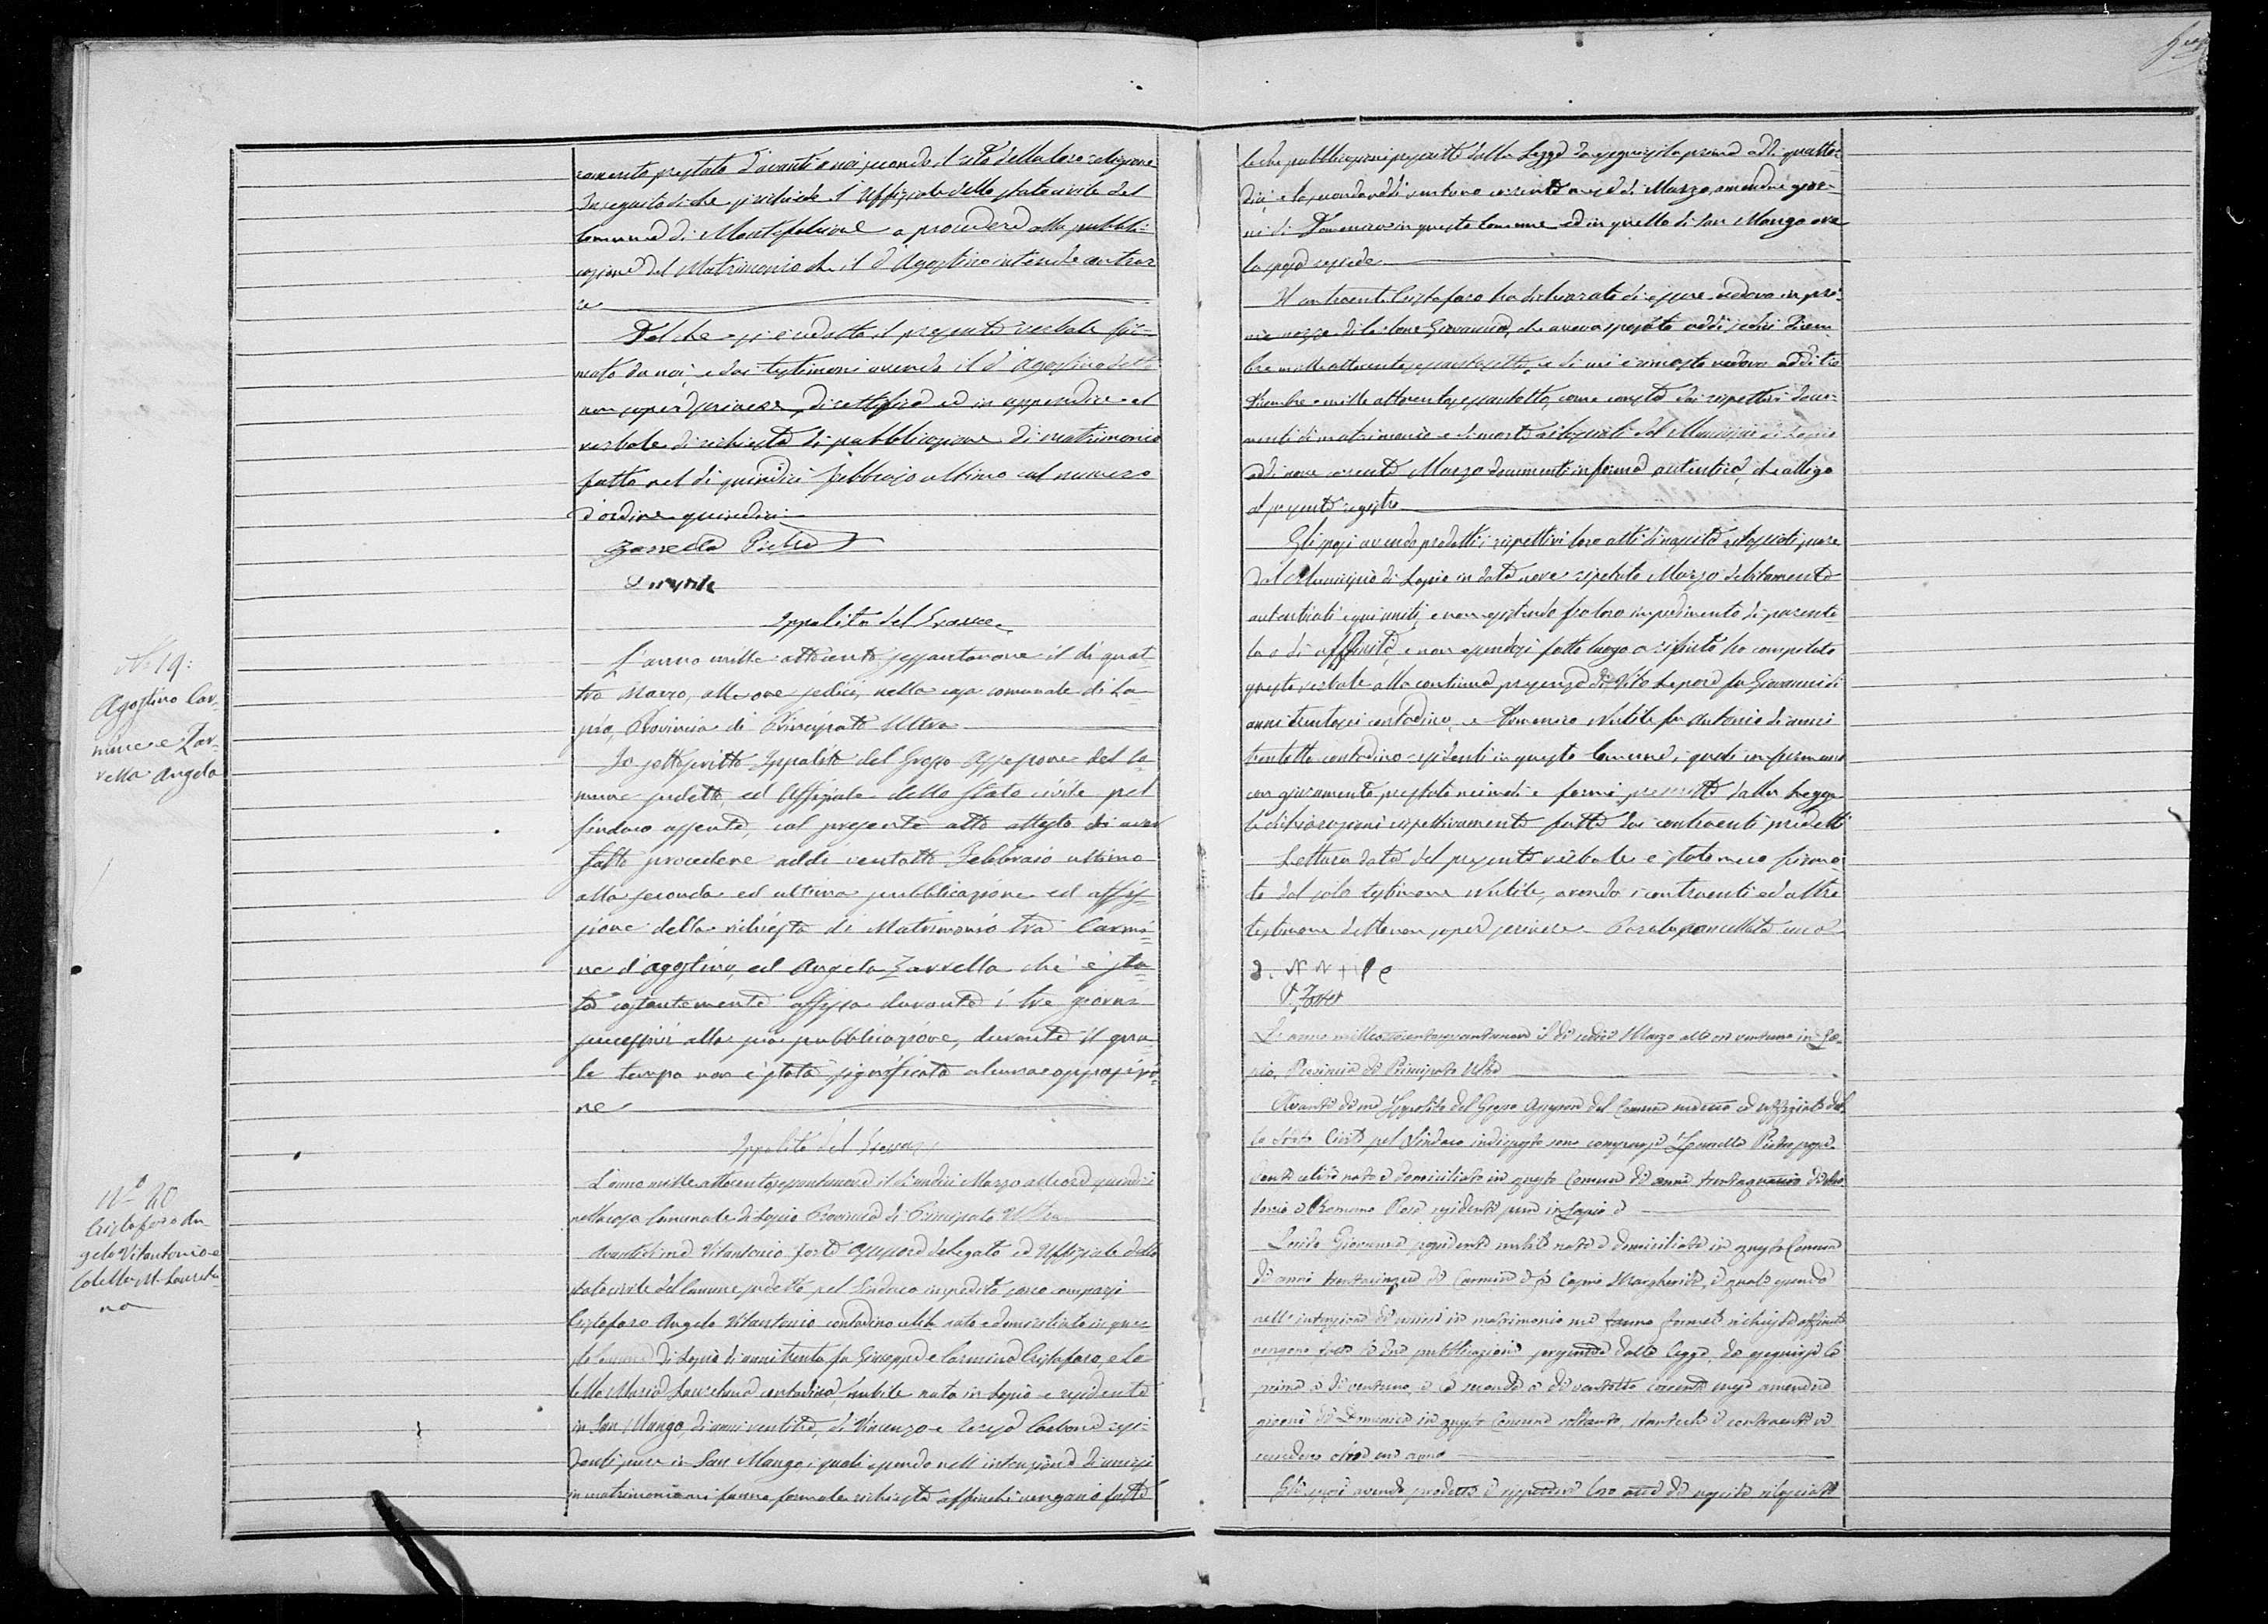 ramento prestato davanti a noi secondo il rito della loro religione
In seguito di che si richiede l'Uffiziale dello stato civile del
Comune di Montefalcione a procedere alla pubbli-
cazione del Matrimonio che il d'Agostino intende contrar
re
Del che si è redatto il presente verbale fir-
mato da noi, e dai testimoni avendo il d'Agostino detto
non saper scrivere, di rettifica ed in appendice al
verbale di richiesta di pubblicazione di matrimonio
fatto nel di quindici febbrajo ultimo col numero
d'ordine quindici
Zarrella Pietro
Ippolito del Grosso
No 19:
Agostino Car-
mine e Zar-
rella Angela
L'anno mille ottocento sessantanove il di quat-
tro Marzo, alle ore sedici, nella casa comunale di La-
pio, Provincia di Principato Ultra
Io sottoscritto Ippolito del Grosso Assessore del Co-
mune sudetto, ed Uffiziale dello Stato civile pel
Sindaco assente, col presente atto attesto di aver
fatto procedere addì ventotto Febbraio ultimo
alla seconda ed ultima pubblicazione ed affis-
sione della richiesta di Matrimonio tra Carmi-
ne d'Agostino, ed Angela Zarrella che è sta-
ta costantemente affissa durante i tre giorni
successivi alla sua pubblicazione, durante il qua-
le tempo non è stata significata alcuna opposizio-
ne
Ippolito del Grosso
No 20
Cristofaro An-
gelo Vitantonio e
Colella M. Lauretu
na
L'anno mille ottocentosessantanove il di undici Marzo alle ore quindici
nella casa Comunale di Lapio Provincia di Principato Ultra
Avanti di me Vitantonio Forte Assessore delegato ed Uffiziale dello
stato civile del Comune sudetto pel Sindaco impedito sono comparsi
Cristofaro Angelo Vitantonio contadino celibe nato e domiciliato in ques-
to Comune di Lapio di anni trenta fu Giuseppe e Carmina Cristofaro, e Co-
lella Maria contadina, nubile nata in Lapio e residente
in San Mango, di anni ventitre, di Vincenzo e Teresa Carbone resi-
denti pure in San Mango i quali essendo nell'intenzione di unirsi
in matrimonio mi fanno formale richiesta affinchè vengano fatte
le due pubblicazioni prescritte dalla Legge da eseguirsi la prima addi quattor
dici e la seconda addi ventuno corrente mese di Marzo, amendue gior-
ni di Domenica in questo Comune ed in quello di San Mango ove
la sposa risiede
Il contraente Cristofaro ha dichiarato di essere vedovo in pri-
me nozze di Giovanna, che aveva sposata addi sedici Dicem
bre mille ottocento sessantasette, e di cui è rimasto vedovo addi tre
Dicembre mille ottocento sessantotto, come consta dai rispettivi docu-
menti di matrimonio e di morte rilasciati dal Municipio di Lapio
addi nove corrente Marzo documenti in forma autentica, che alligo
al presente registro
Gli sposi avendo prodotti i rispettivi loro atti di nascita rilasciati pure
dal Municipio di Lapio in data nove ripetuto Marzo debitamente
autenticati e qui uniti, e non esistendo fra loro impedimento di parente
la o di affinità, e non essendosi fatto luogo a rifiuto ho compilato
questo verbale alla continua presenza di Vito Lepore fu Giovanni di
anni trentasei contadino, e Domenico Nutile fu Antonio di anni
trentotto contadino residenti in questo Comune, i quali confermano
con giuramento prestato nei modi e forme prescritte dalla Legge
le dichiarazioni rispettivamente fatte dai contraenti predetti
Lettura data del presente verbale è stato meco firma
to dal solo testimone Nutile, avendo i contraenti ed altro
testimone detto non saper scrivere
D. Nutile
V. Forte
L'anno mille ottocentosessantanove il di sedici Marzo alle ore ventuno in La-
pio, Provincia di Principato Ultra
Avanti di me Ippolito del Grosso Assessore del Comune medesimo ed uffiziale del
lo Stato Civile pel Sindaco indisposto sono comparsi Zarrella Pietro possi-
dente celibe nato e domiciliato in questo Comune di anni
e Romano Rosa residenti pure in Lapio e
Giovanna possidente nubile nata e domiciliata in questo Comune
di anni trentacinque di Carmine e di Margherita, i quali essendo
nell'intenzione di unirsi in matrimonio mi fanno formale richiesta affinchè
vengano fatte le due pubblicazioni prescritte dalla Legge, da eseguirsi la
prima a di ventuno, e la seconda a di ventotto corrente mese amendue
giorni di Domenica in questo Comune soltanto,
Gli sposi avendo prodotto i rispettivi loro atti di nascita rilasciati